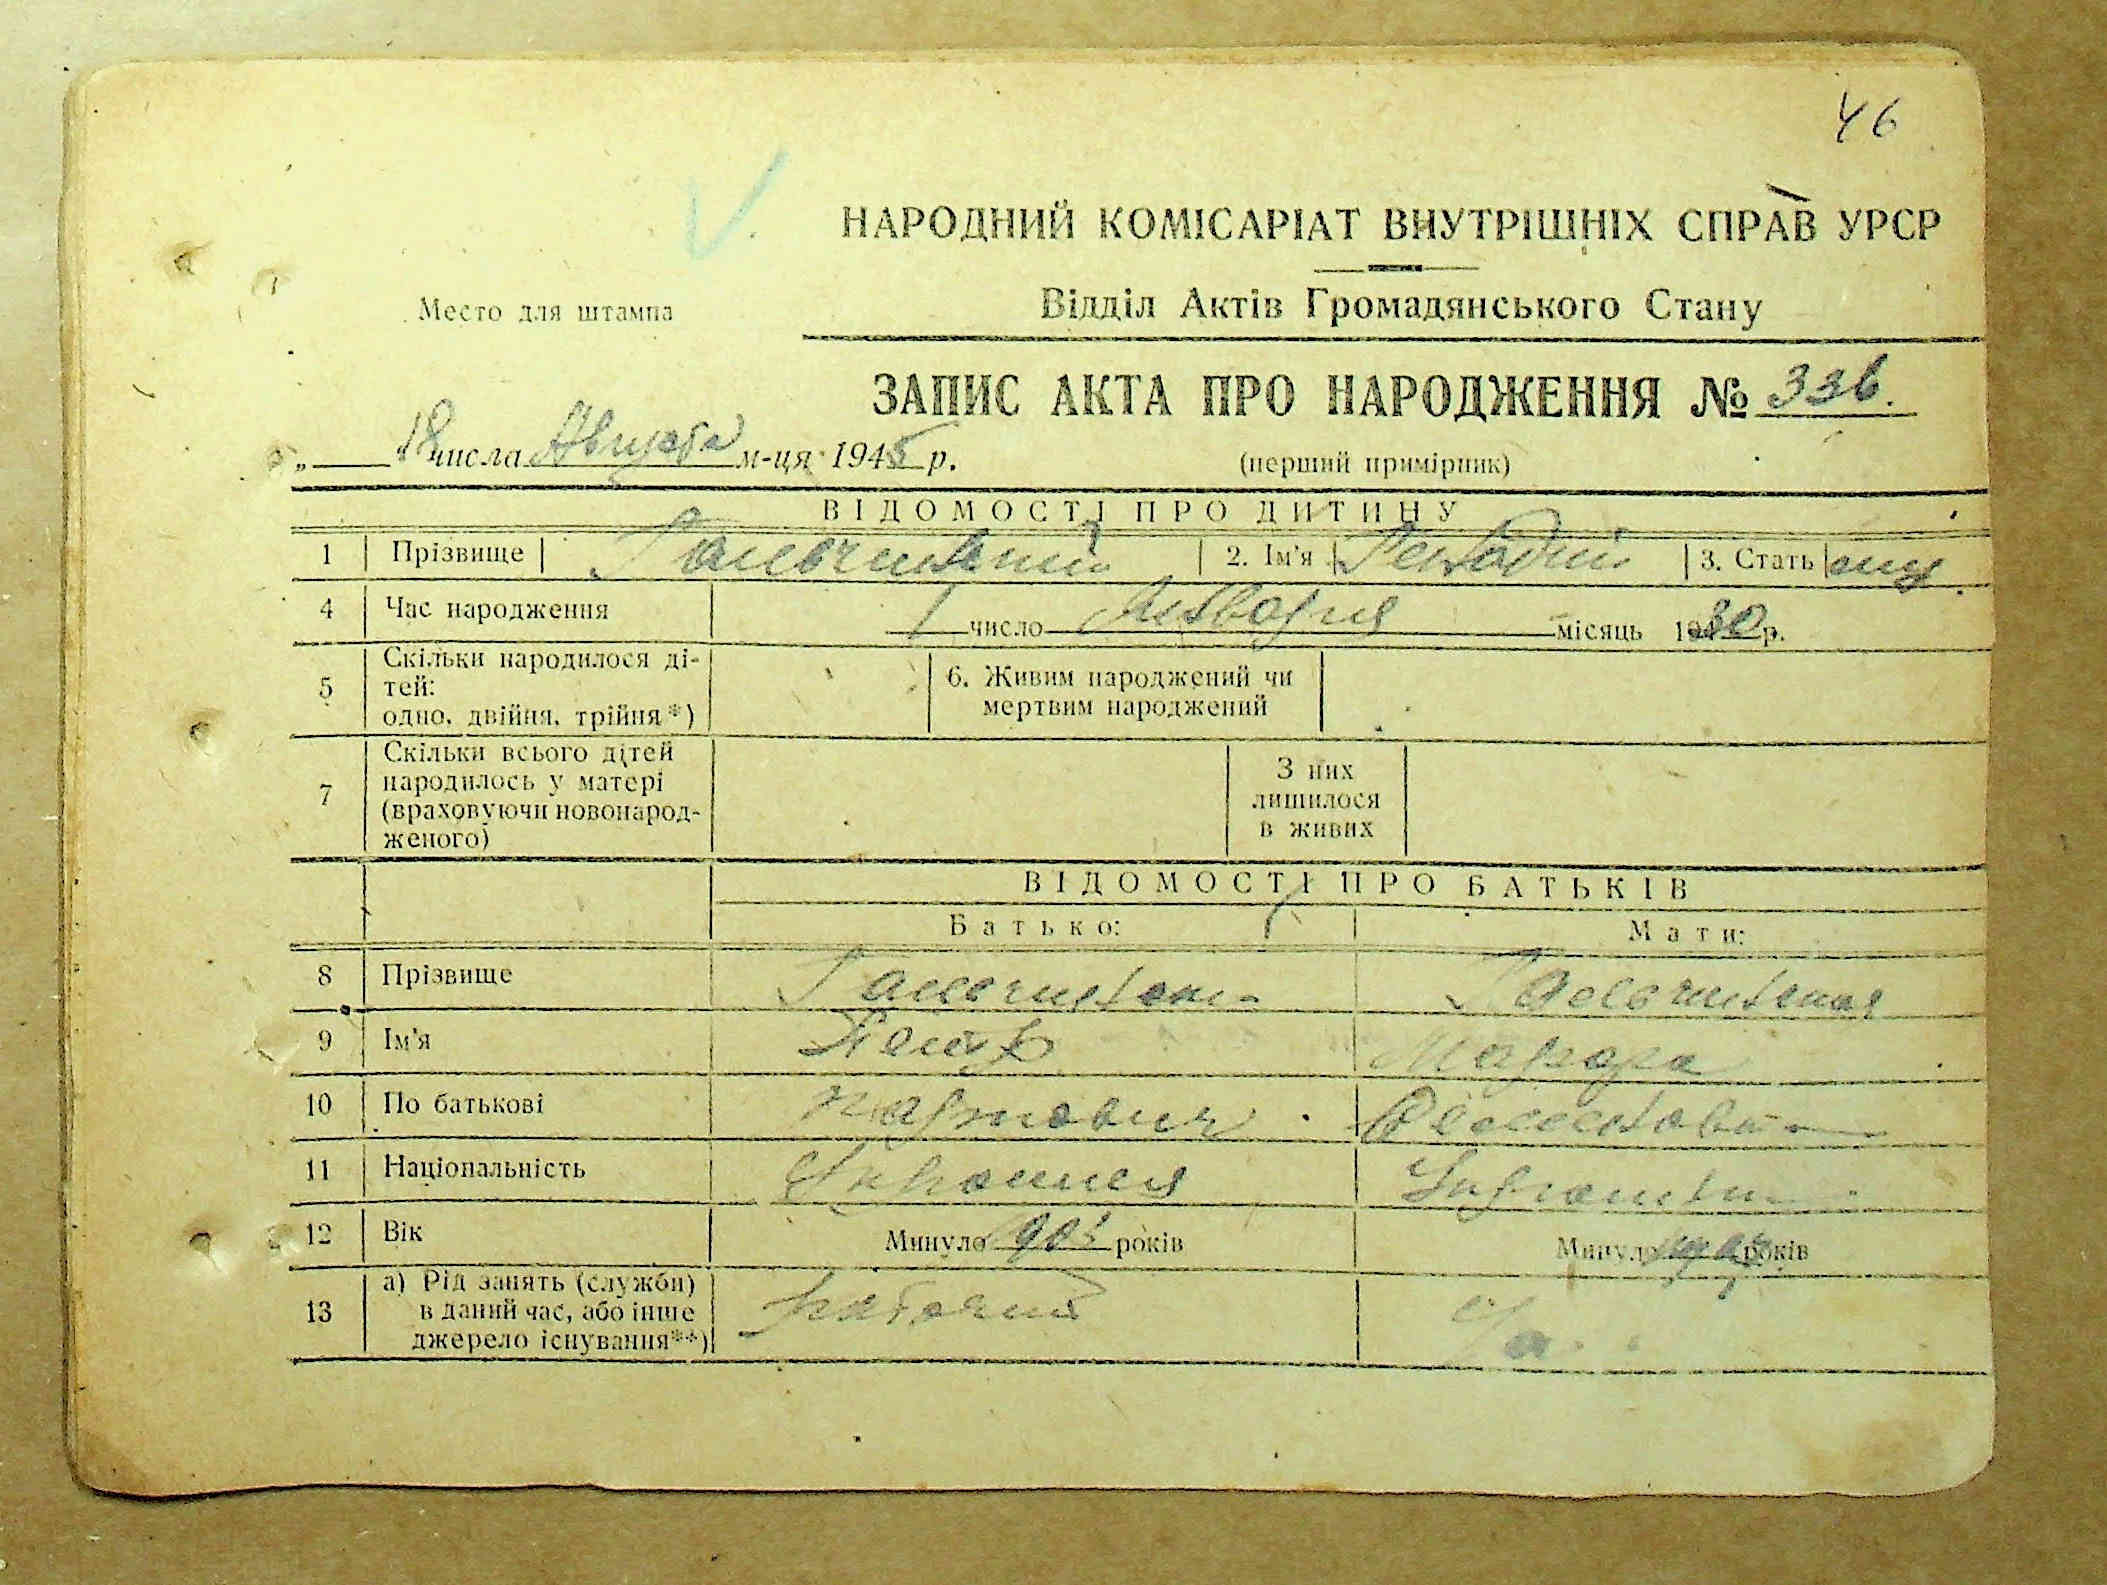 46
НАРОДНИЙ КОМІСАРІАТ ВНУТРІШНІХ СПРАВ УРСР
Место для штампа
Відділ Актів Громадянського Стану
ЗАПИС АКТА ПРО НАРОДЖЕННЯ № 336.
„ “ 18 числа Августа м-ця 1945 р.
(перший примірник)
ВІДОМОСТІ ПРО ДИТИНУ
1 Прізвище 2. Ім'я Генадий 3. Стать муж
4 Час народження 1 число января місяць 1930 р.
5 Скільки народилося ді-
тей:
одно, двійня, трійня*)
6. Живим народжений чи
мертвим народжений
7 Скільки всього дітей
народилось у матері
(враховуючи новонарод-
женого)
З них
лишилося
в живих
ВІДОМОСТІ ПРО БАТЬКІВ
Батько: Мати:
8 Прізвище
9 Ім'я Петр
10 По батькові
11 Національність Украинец Украинка
12 Вік Минуло 903 років Минуло років
13 а) Рід занять (служби)
в даний час, або інше
джерело існування**)
рабочий